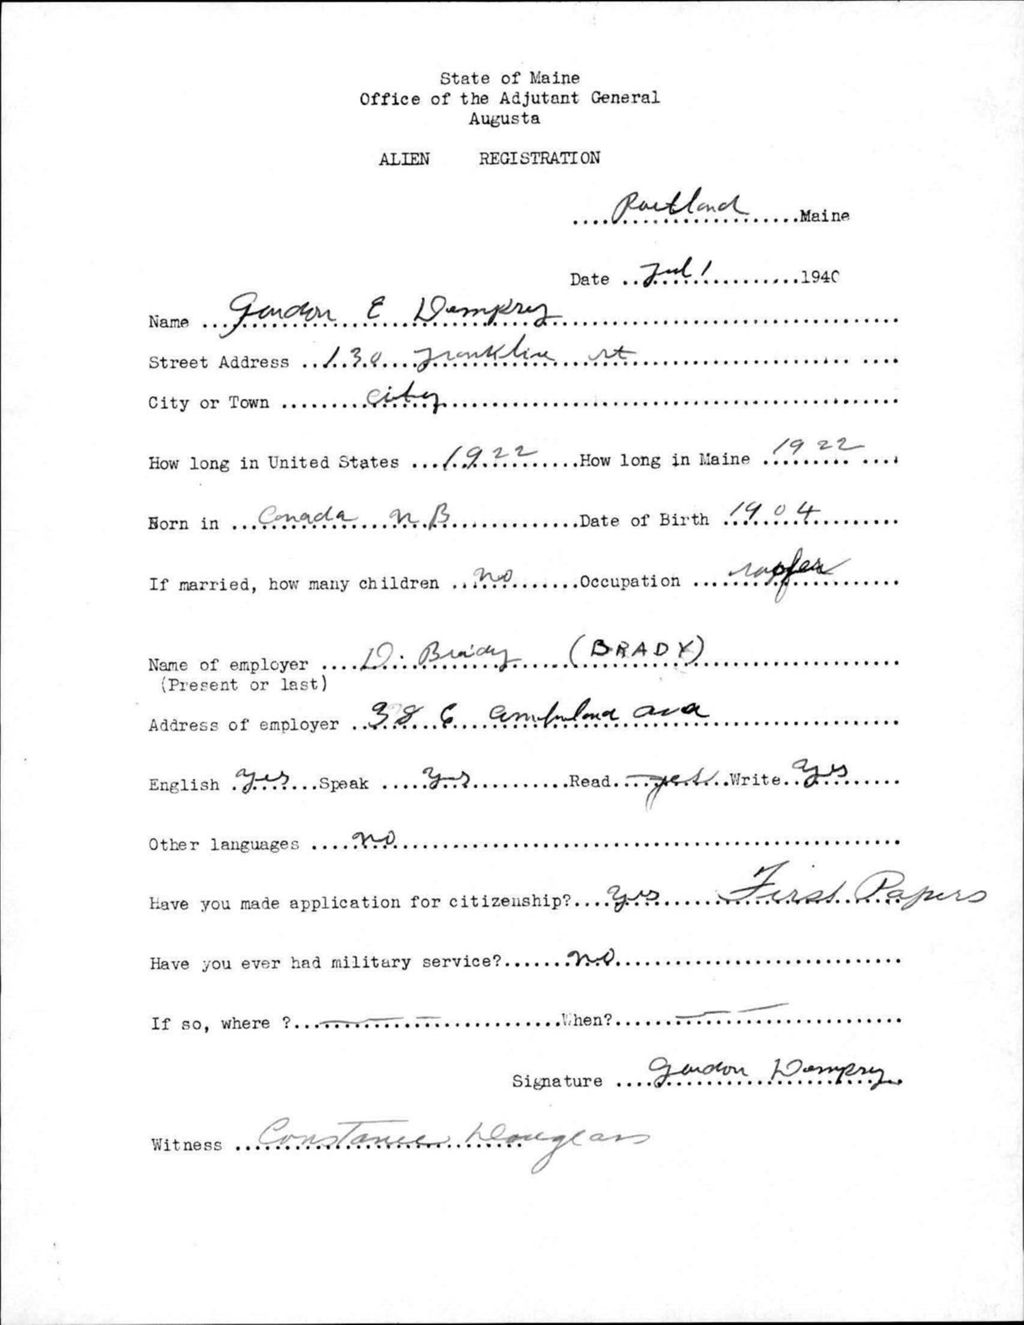 State of Maine
Office of the Adjutant General
Augusta
ALIEN REGISTRATION
....Portland....Maine
Date ..Jul 1....1940
Name ...Gordon E Dempsey....
Street Address ..130 Franklin st....
City or Town ....City....
How long in United States ...1922....How long in Maine ...1922....
Born in ...Canada N.B....Date of Birth ...1904....
If married, how many children ...no....Occupation ...
Name of employer ....D. Braidy (BRADY)....
(Present or last)
Address of employer ..38 E ave....
English .Yes...Speak .....Yes....Read....yes...Write..Yes....
Other languages ....no....
Have you made application for citizenship?....Yes....First Papers
Have you ever had military service?.......no....
If so, where ?...— —....When?......— —....
Signature ....Gordon Dempsey..
Witness ...Constance Douglass